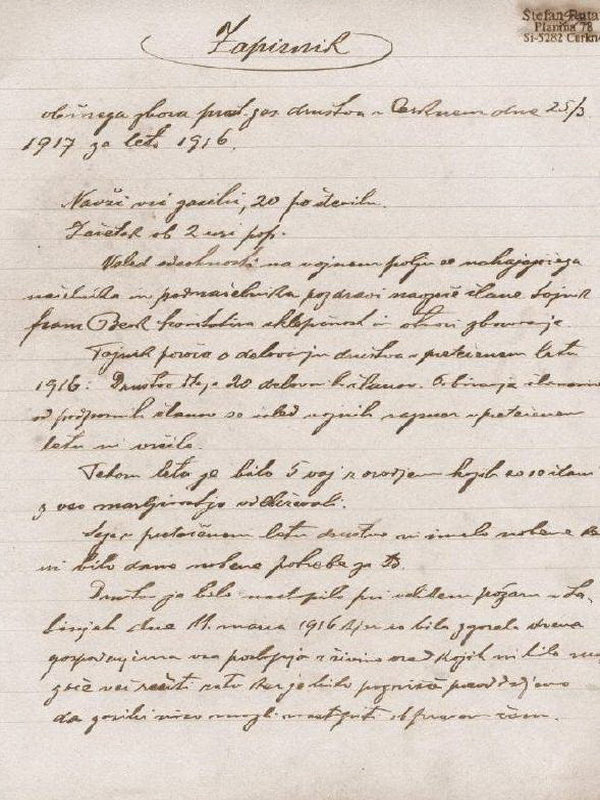 Štefan Ruta
Planina 78
SI-5282 Cerkno
Zapisnik
občnega zbora prost. gas. društva v Cerknem dne 25/3
1917 za leto 1916.
Navzoči vsi gasilci, 20 po številu.
Začetek ob 2 uri pop.
Vsled odsotnosti na vojnem polju se nahajajočega
načelnika in podnačelnika pozdravi navzoče člane tajnik
franc Beuk konstatira sklepčnost in otvori zborovanje.
Tajnik poroča o delovanju društva v pretečenem letu
1916: Društvo šteje 20 delovnih članov. Pobiranje članarine
od podpornih članov se vsled vojnih razmer v pretečenem
letu ni vršilo.
Tekom leta je bilo 5 vaj z orodjem kojih so se člani
z vso marljivostjo udeleževali.
Seje v pretečenem letu društvo ni imelo nobene
ni bilo dano nobene potrebe za to.
Društvo je bilo nastopilo pri velikem požaru v La-
binjah dne 11. marca 1916 kjer so bila zgorela dvema
gospodarjema vsa poslopja z živino vred kojih ni bilo
goče več rešiti zato ker je bilo pogorišče preoddaljeno
da gasilci niso mogli nastopiti ob pravem času.